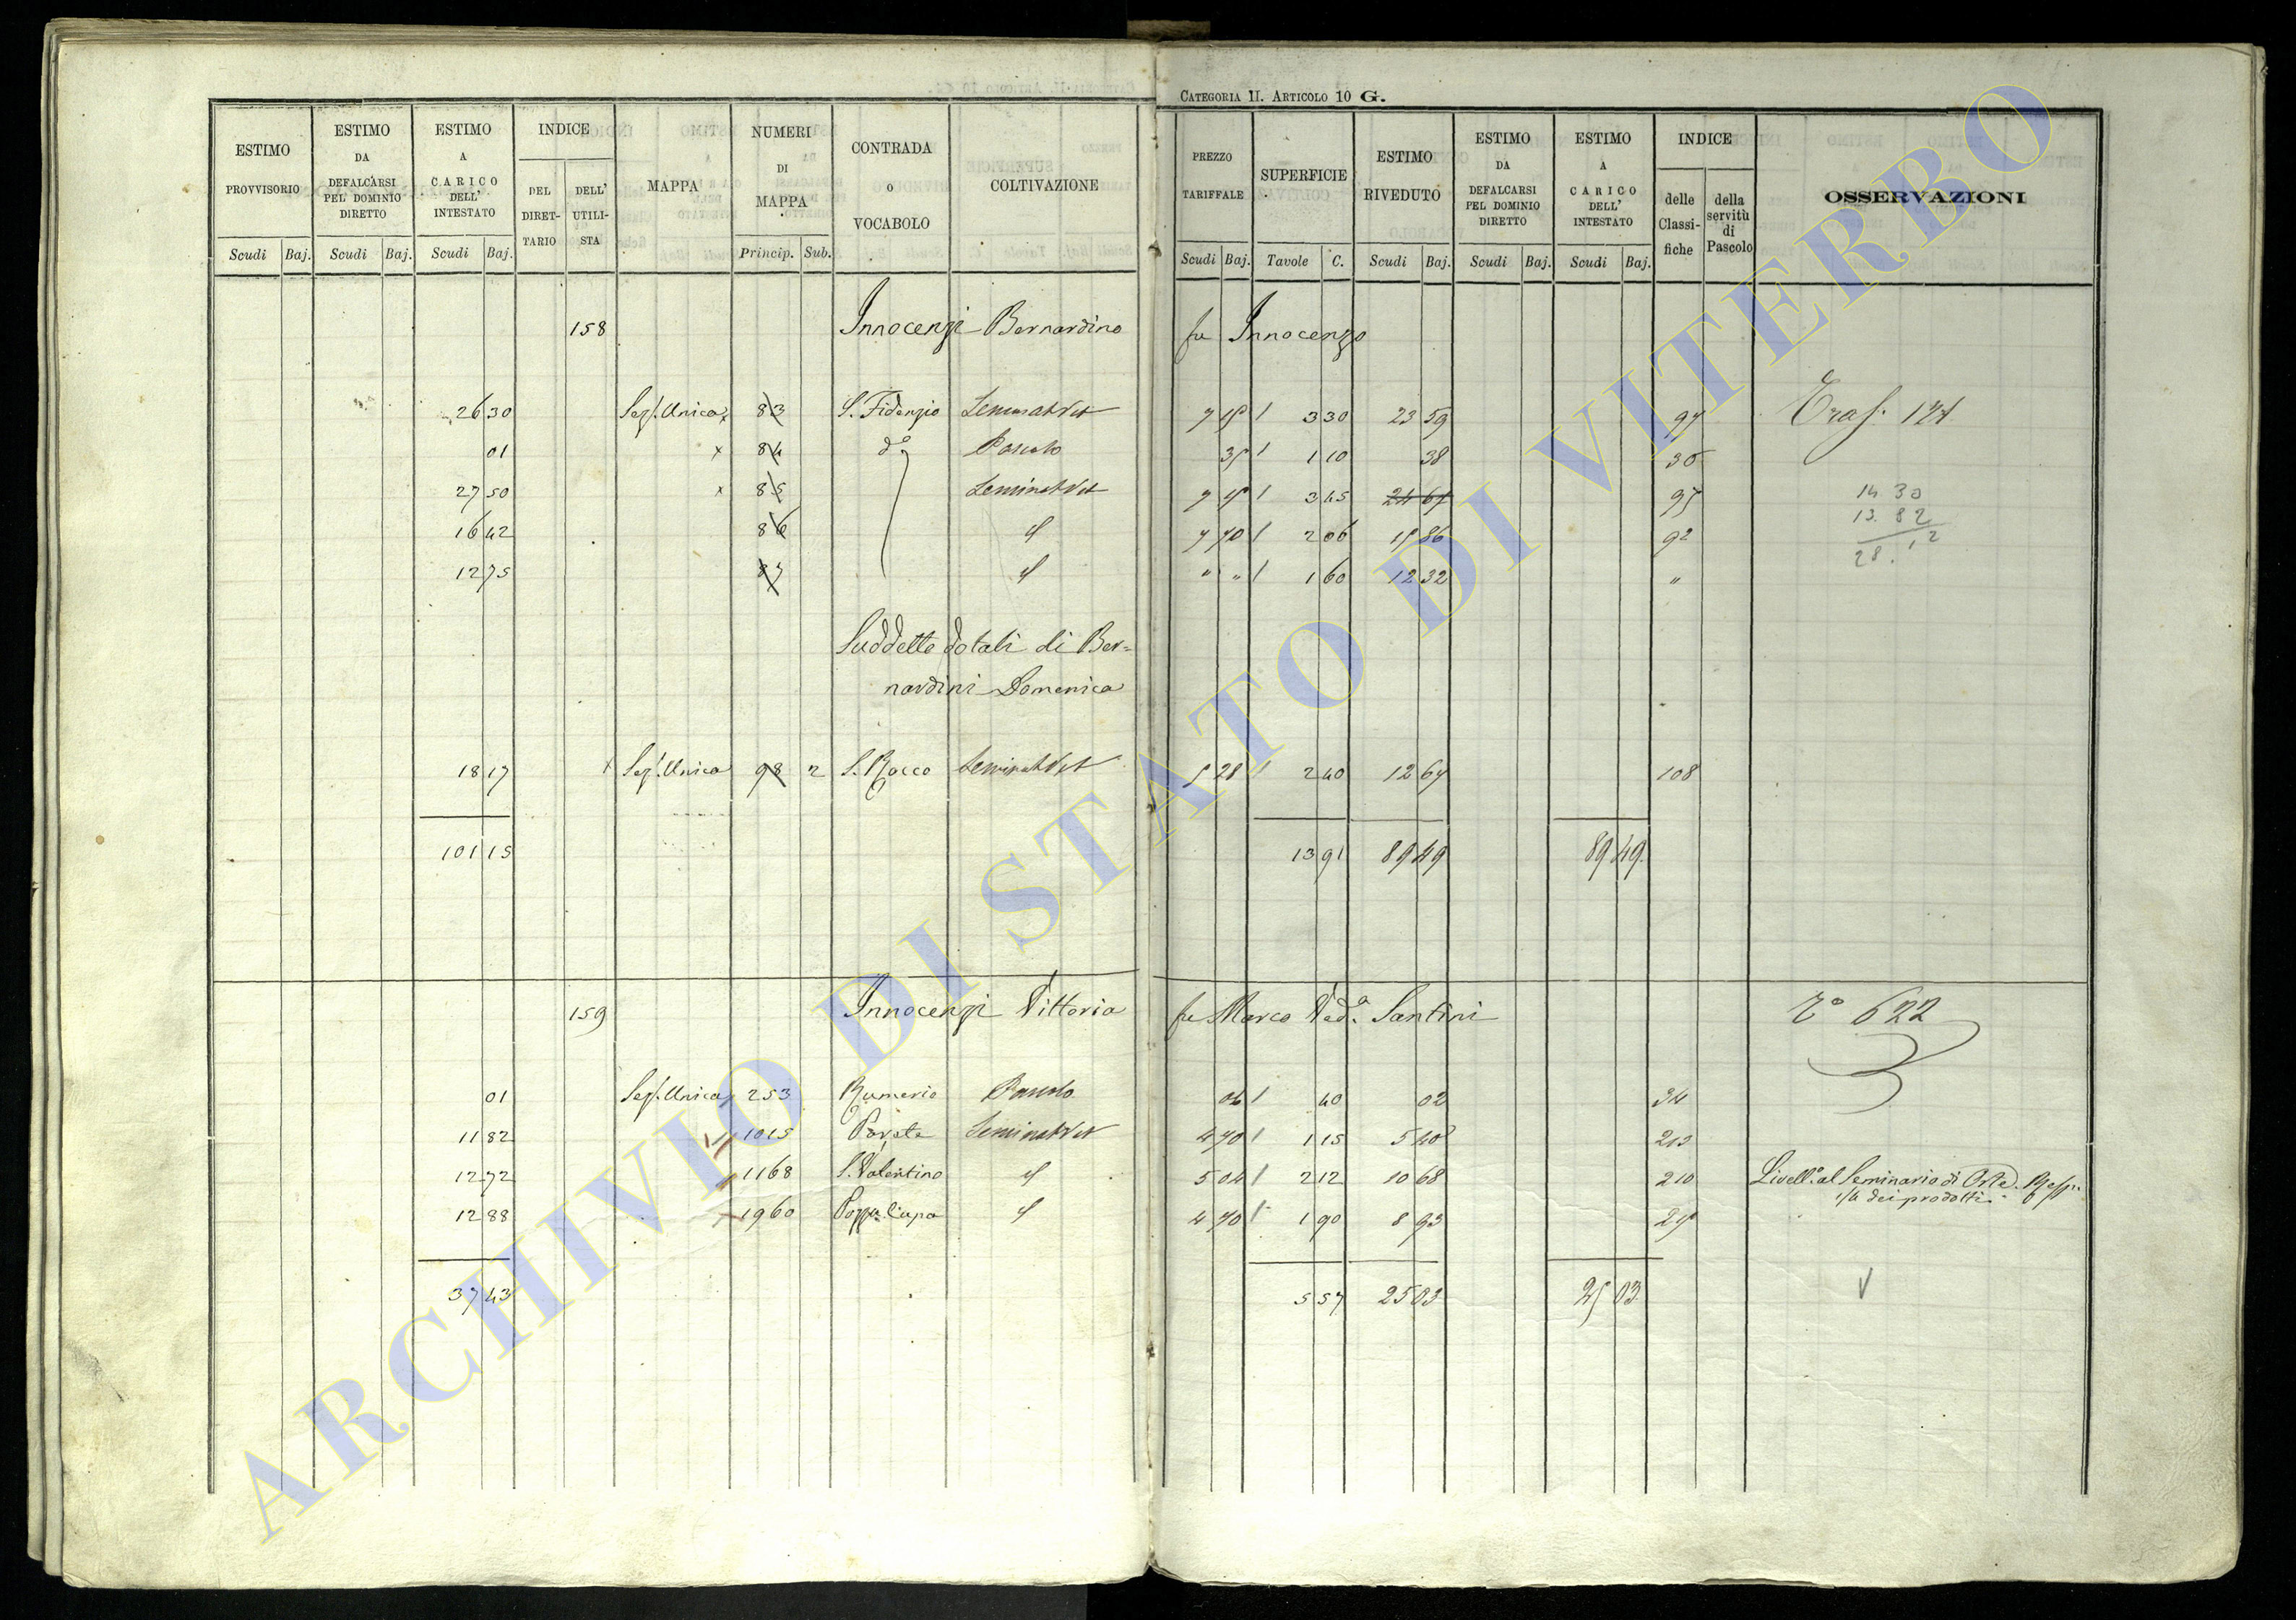 CATEGORIA II. ARTICOLO 10 G.
ESTIMO PROVVISORIO Scudi Baj.
ESTIMO DA DEFALCARSI PEL DOMINIO DIRETTO Scudi Baj.
ESTIMO A CARICO DELL' INTESTATO Scudi Baj.
INDICE DEL DIRETTARIO DELL' UTILISTA
MAPPA
NUMERI DI MAPPA Princip. Sub.
CONTRADA O VOCABOLO
COLTIVAZIONE
PREZZO TARIFFALE Scudi Baj.
SUPERFICIE Tavole C.
ESTIMO RIVEDUTO Scudi Baj.
ESTIMO DA DEFALCARSI PEL DOMINIO DIRETTO Scudi Baj.
ESTIMO A CARICO DELL' INTESTATO Scudi Baj.
INDICE delle Classifiche della servitù di Pascolo
OSSERVAZIONI
158 Innocenzi Bernardino fu Innocenzo
26 30 Sez. Unica x 83 S. Fidenzio Seminat Vit 3 30 23 59 Tras. 
01 x 84 do Pascolo 1 10 38
27 50 x 85 Seminat Vit 3 45 24 67 14 30
16 42 86 7 70 2 06 15 86 92 13. 82
12 75 87 " " 1 60 12 32 " 28. 12
Suddetto dotali di Ber=
nardini Domenica
18 17 x Sez. Unica 98 2 S. Rocco Seminat Vit 5 28 2 40 12 67 108
101 15 13 91 89 49 89 49
159 Innocenzi Vittoria fu Marco Vedª Santini 622
01 Sez. Unica 253 Rumerio Pascolo 04 40 02 34
11 82 1015 Seminat Vit 4 70 1 15 5 40
12 72 1168 S. Valentino 5 04 2 12 10 68 210 Livellº al Seminario di Orte. Risp.
1/4 dei prodotti
12 88 1960 4 70 1 90 8 93
37 43 5 57 25 03 25 03
ARCHIVIO DI STATO DI VITERBO